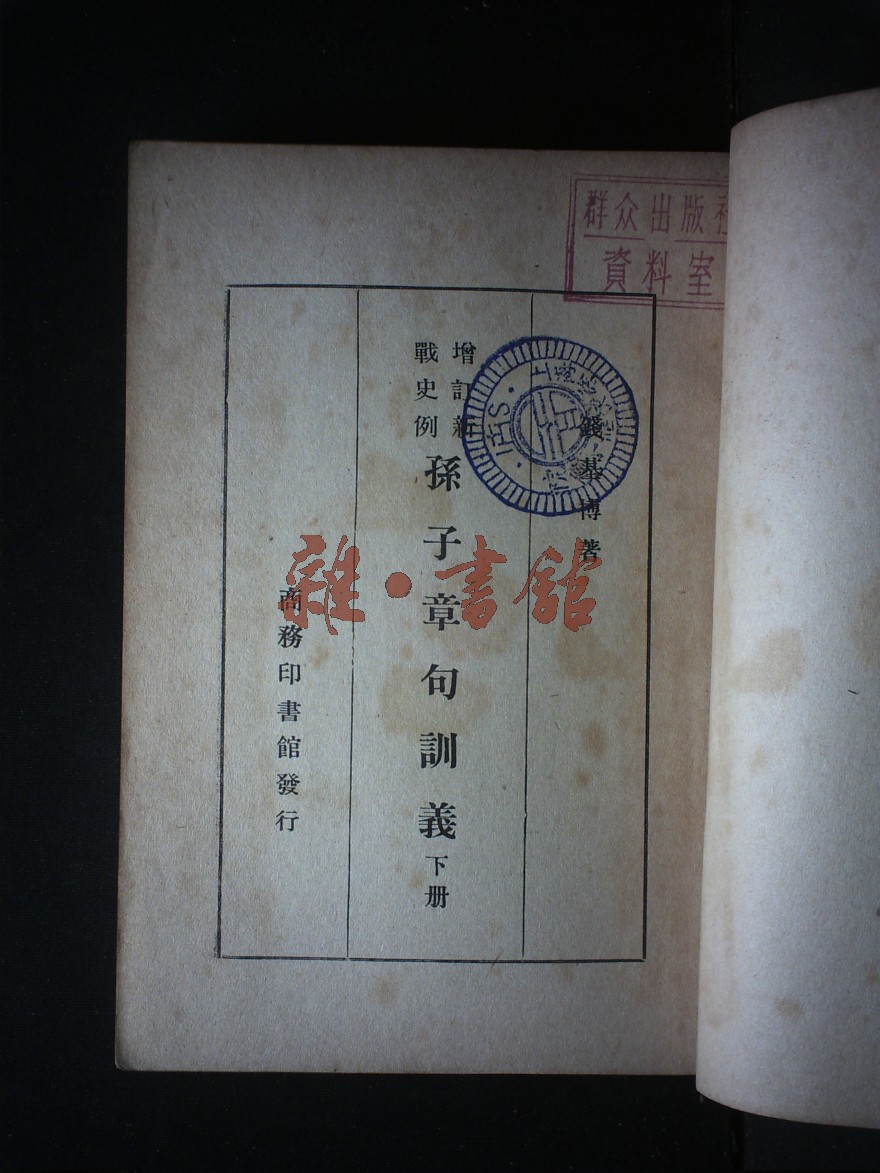 群众出版
資料室
錢基博著
增訂新
戰史例
孫子章句訓義 下册
商務印書館發行
雜·書館